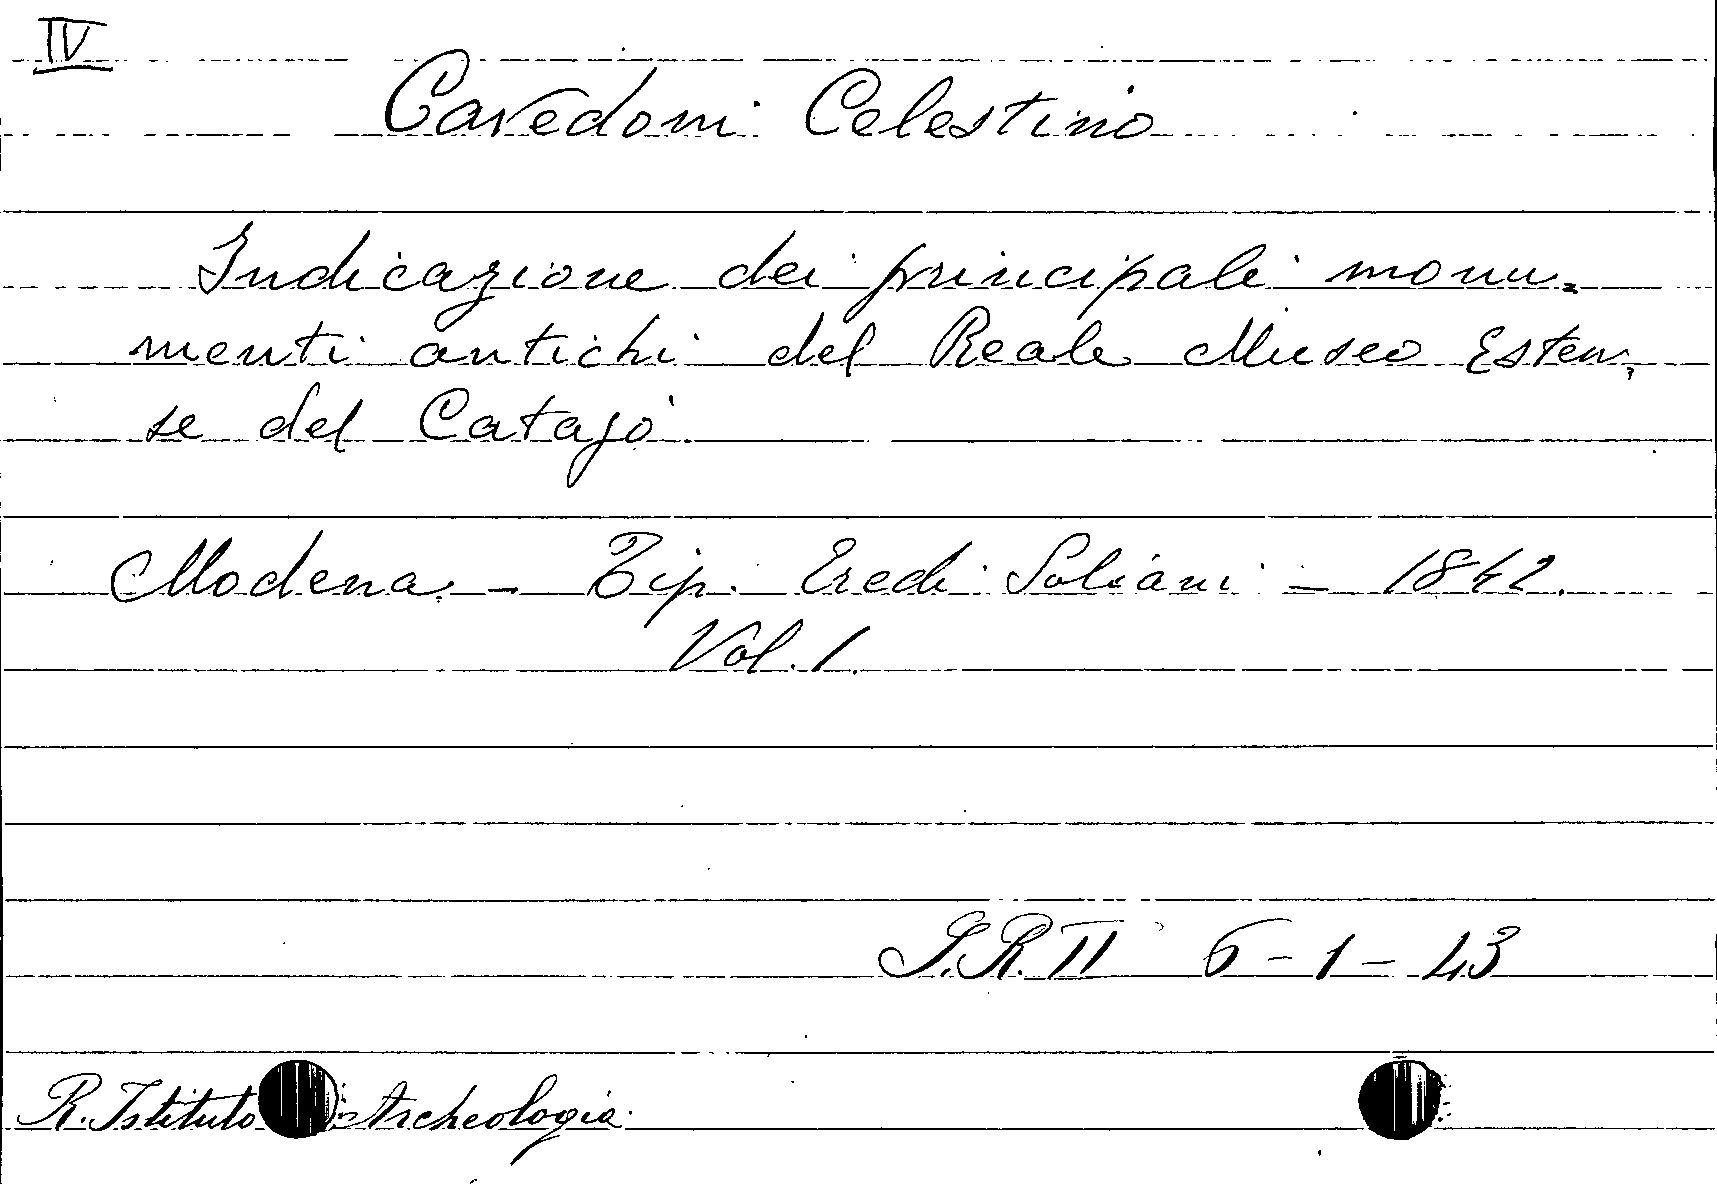 IV
Cavedoni Celestino
Indicazione dei principali monu=
menti antichi del Reale Museo Esten,
se del Catajo
Modena - Tip. Eredi Soliani - 1842.
Vol. 1.
S.R. II 6-1-43
R. Istituto Archeologia